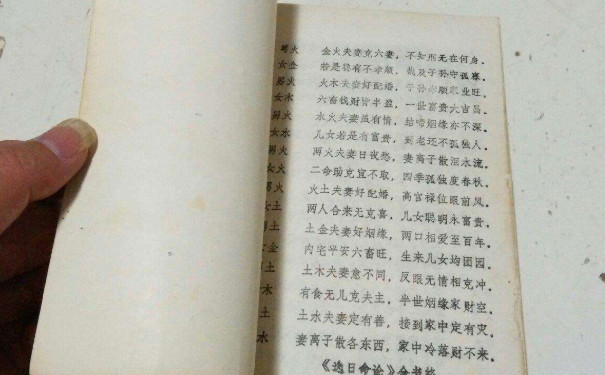 男火 金火夫妻克六妻，不知刑无在何身。
女金 若是终有不孝顺，我及子孙守孤寡。
男火 火木夫妻好配婚，子孙孝顺家业旺。
女木 六畜钱财皆丰盈，一世富贵大吉昌。
男火 水火夫妻虽有情，结啼姻缘亦不深。
女水 儿女若是有富贵，到老还不孤独人。
男火 两火夫妻日夜愁，妻离子散泪水流。
女火 二命助克宜不取，四季孤独度春秋。
男火 火土夫妻好配婚，高官禄位眼前风。
女土 两人合来无克喜，儿女聪明永富贵。
土 土金夫妻好姻缘，两口相爱至百年。
金 内宅平安六畜旺，生来儿女均团园。
土 土木夫妻意不同，反眼无情相克冲。
木 有食无儿克夫主，半世姻缘家财空。
土 土水夫妻定有善，接到家中定有灾。
水 妻离子散各东西，家中冷落财不来。
《选日命论》全书终